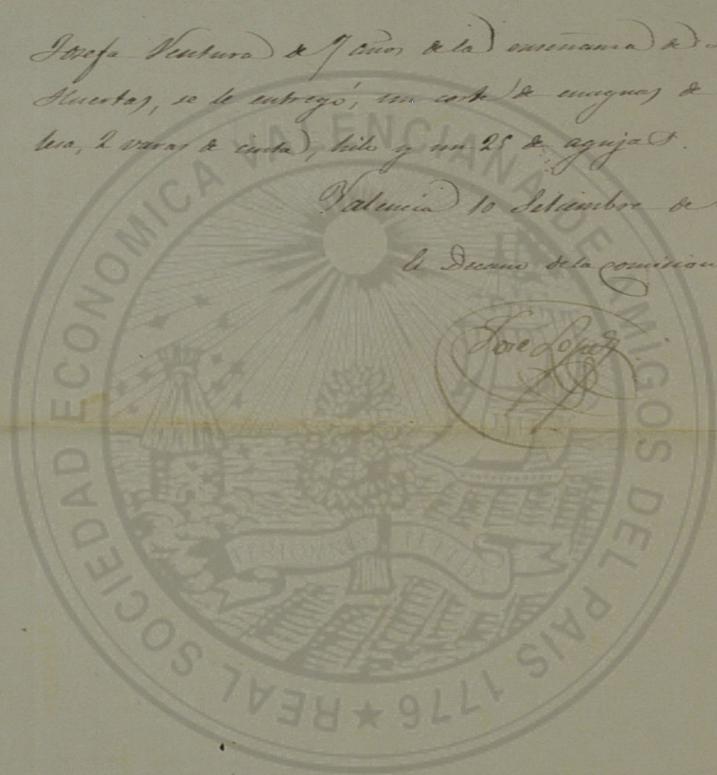 Josefa Ventura de 7 años de la enseñanza de
Huertas, se le entregó, un corte de enaguas de
lesa, 2 varas de cinta, hilo y un 25 de agujas.
Valencia 10 Setiembre de
El Decano de la comision
Jose Lopez
REAL SOCIEDAD ECONOMICA VALENCIANA DE AMIGOS DEL PAIS 1776
FERT OMNIA TELLUS